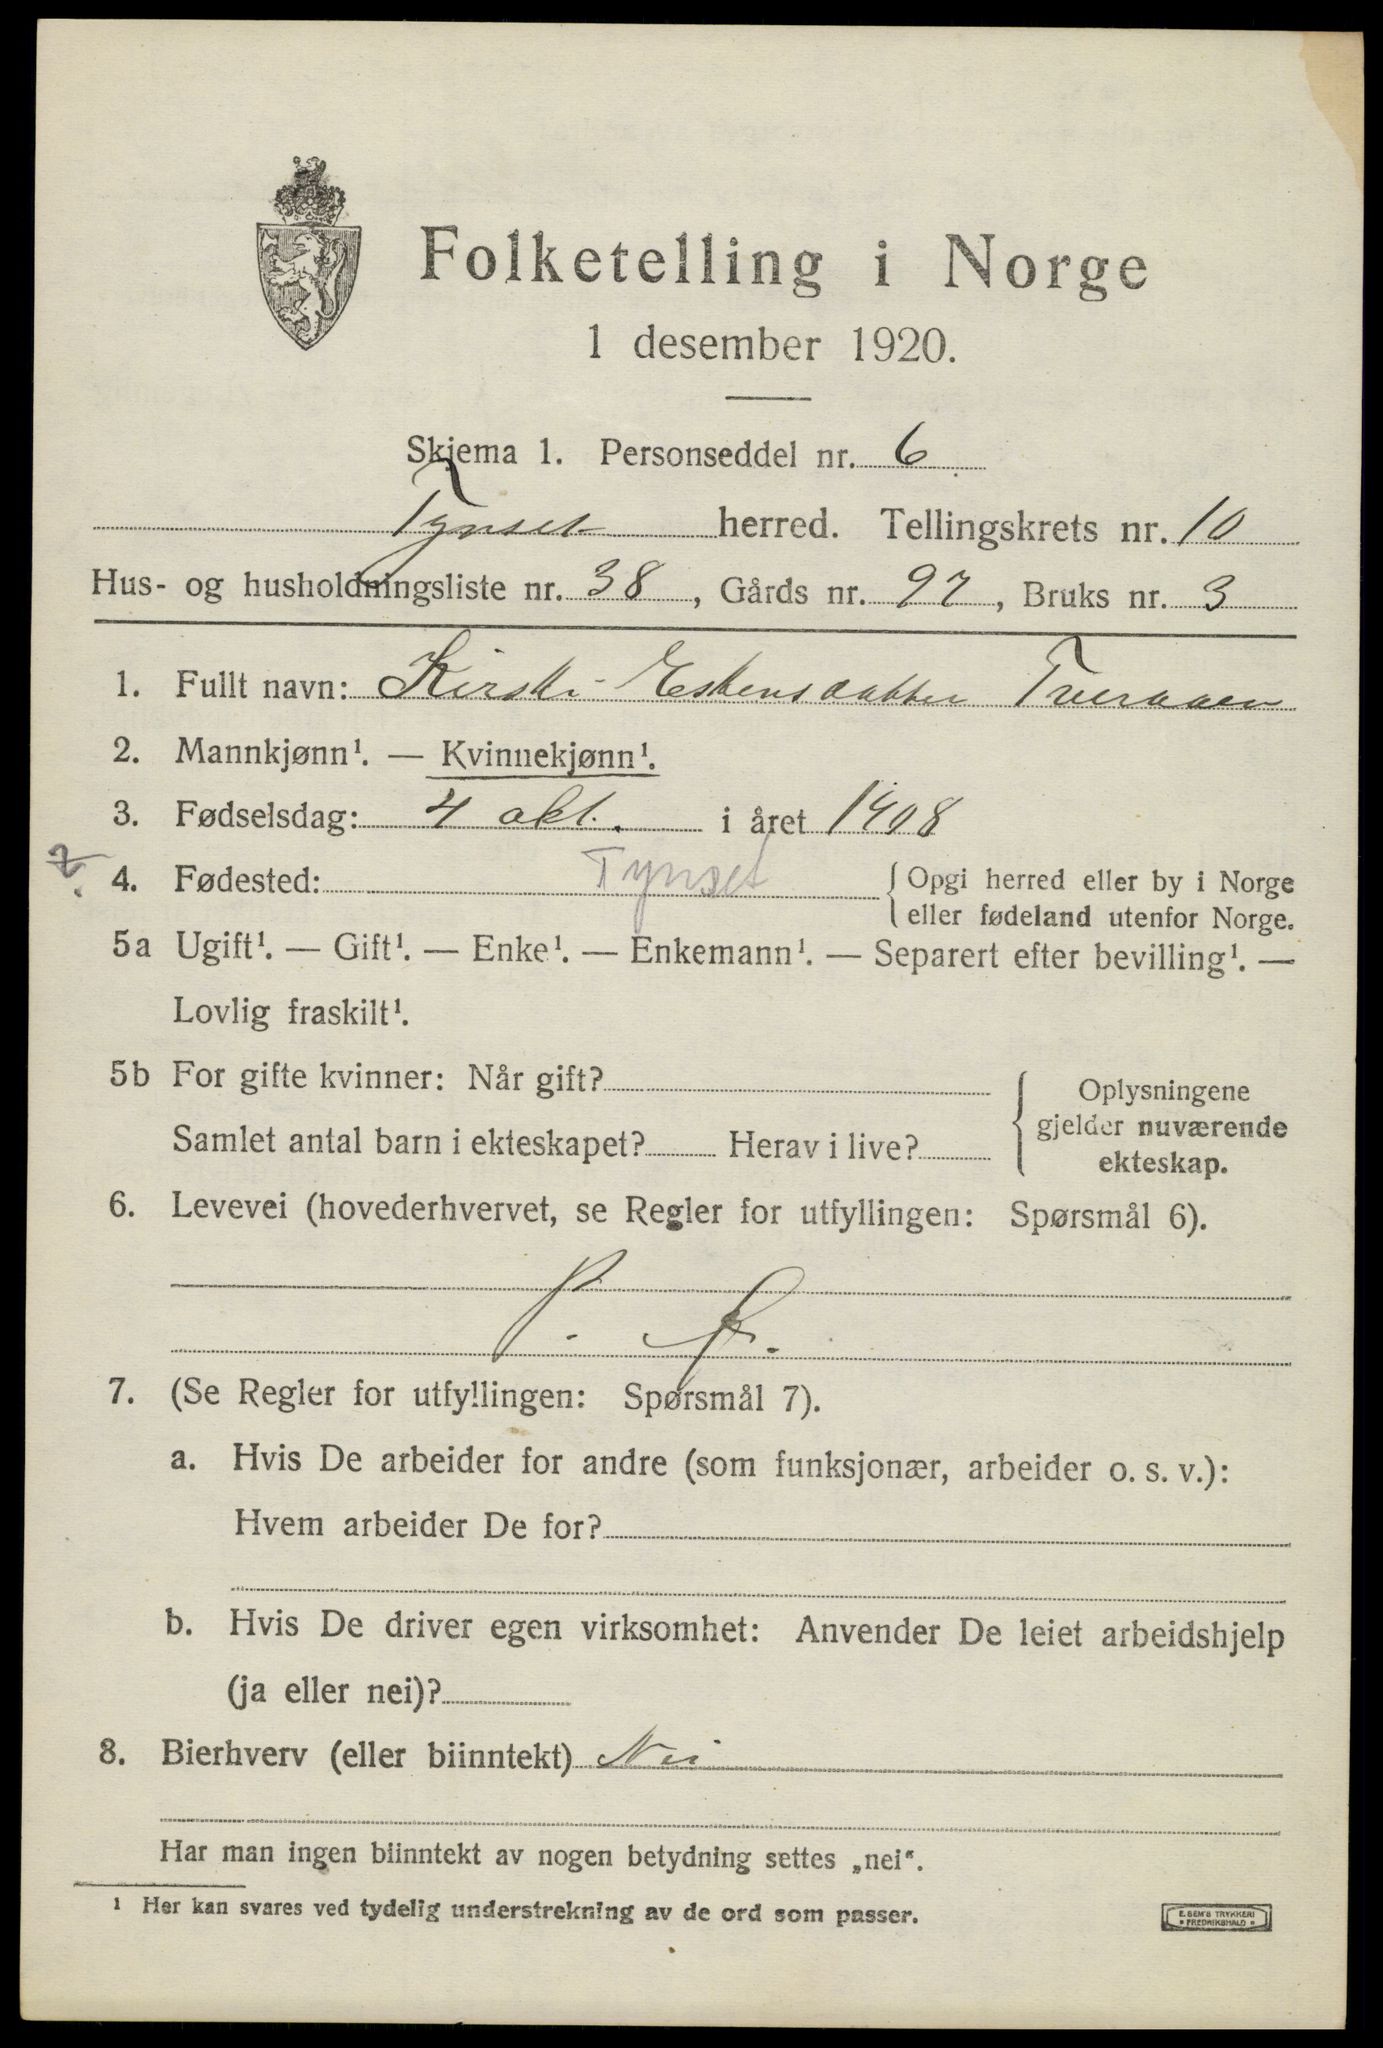 Folketelling i Norge
1 desember 1920.
Skjema 1. Personseddel nr. 6
Tynset herred. Tellingskrets nr. 10
Hus- og husholdningsliste nr. 38, Gårds nr. 97, Bruks nr. 3
1. Fullt navn: Kirsti Eskensdatter Tveraaen
2. Mannkjønn¹. — Kvinnekjønn¹.
3. Fødselsdag: 4 okt. i året 1908
4. Fødested: Tynset { Opgi herred eller by i Norge
eller fødeland utenfor Norge.
5a Ugift¹. — Gift¹. — Enke¹. — Enkemann¹. — Separert efter bevilling¹. —
Lovlig fraskilt¹.
5b For gifte kvinner: Når gift? { Oplysningene
gjelder nuværende
Samlet antal barn i ekteskapet? Herav i live?
ekteskap.
6. Levevei (hovederhvervet, se Regler for utfyllingen: Spørsmål 6).
7. (Se Regler for utfyllingen: Spørsmål 7).
a. Hvis De arbeider for andre (som funksjonær, arbeider o. s. v.):
Hvem arbeider De for?
b. Hvis De driver egen virksomhet: Anvender De leiet arbeidshjelp
(ja eller nei)?
8. Bierhverv (eller biinntekt) Nei
Har man ingen biinntekt av nogen betydning settes „nei“.
¹ Her kan svares ved tydelig understrekning av de ord som passer.
E. SEM'S TRYKKERI
• FREDRIKSHALD •